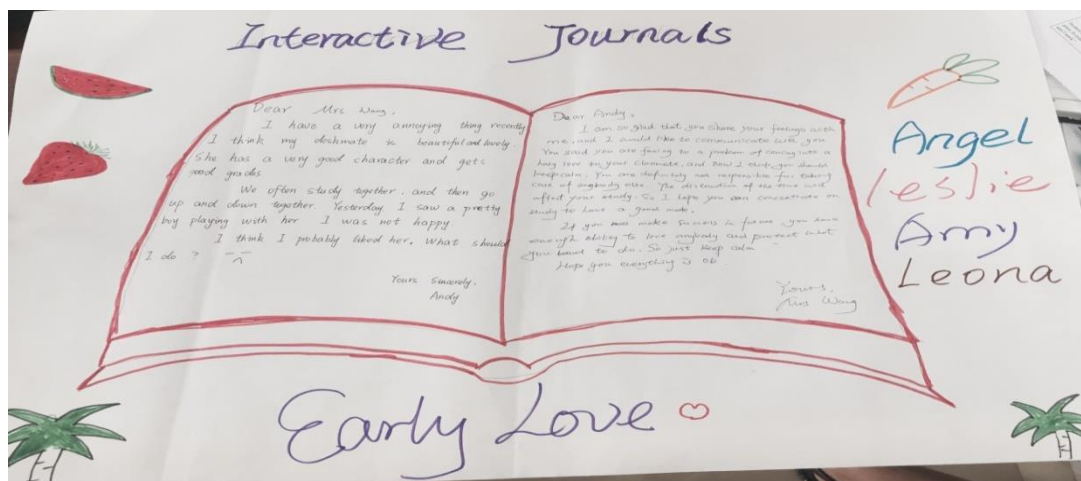 Interactive Journals
Dear Mrs Wang,
I have a very annoying thing recently
I think my deskmate is beautiful and lovely.
She has a very good character and gets
good grades
We often study together. and then go
up and down together. Yesterday, I saw a pretty
boy playing with her I was not happy
I think I probably liked her. What should
I do ?
Yours Sincerely,
Andy
Dear Andy,
I am so glad that you share your feelings with
me, and I would like to communicate with you
You said you are facing to a problem of
love to your classmate, and now I you should
keep calm. You are definitely not responsible for taking
care of anybody else. The distraction of the love will
affect your study. So I hope you can concentrate on
study to have a good
If you make success in future, you have
enough ability to love anybody and protect what
you want to do. So just keep calm
Hope you everything is ok.
Yours,
Mrs Wang
Angel
leslie
Amy
Leona
Early Love